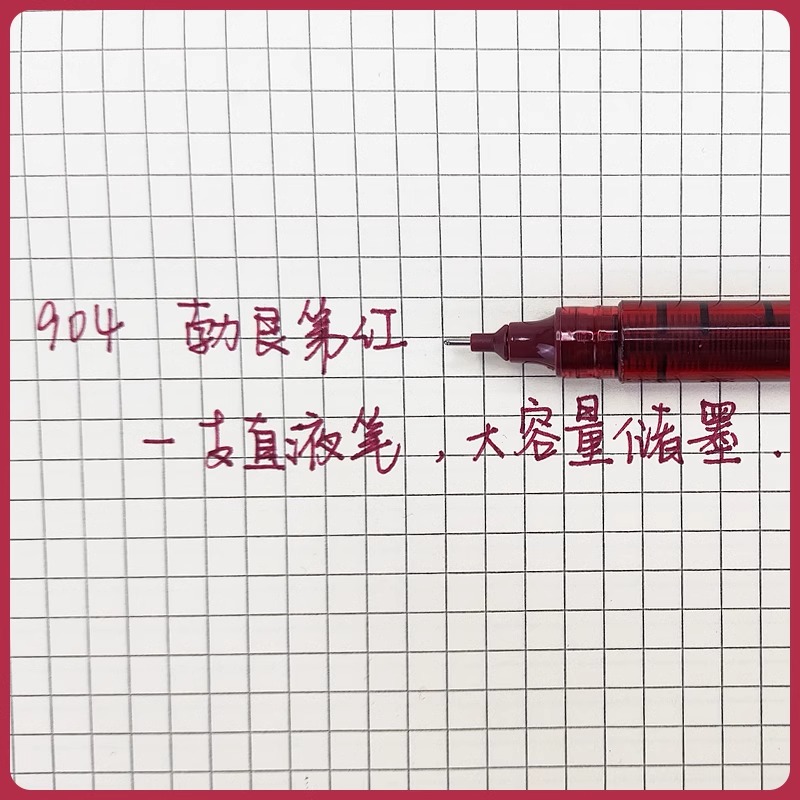 904 勃艮第红
一支直液笔，大容量储墨.